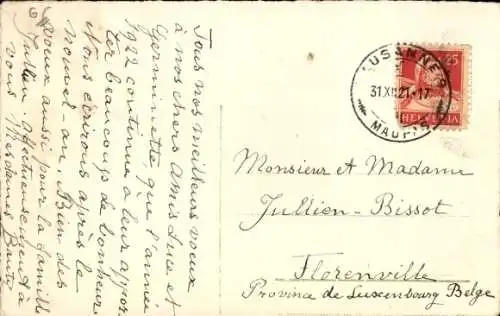 Tous nos meilleurs voeux
à nos chers amis Luce et
Germinette que l'année
1922 continue à leur appor-
ter beaucoup de bonheur
Nous écrirons après le
nouvel-an. Bien des
voeux aussi pour la famille
Jullien. Affectueusement à
vous Mesdames
LAUSANNE
31.XII.21.-17
25
HELVETIA
Monsieur et Madame
Jullien-Bissot
Florenville
Province de Luxembourg Belge